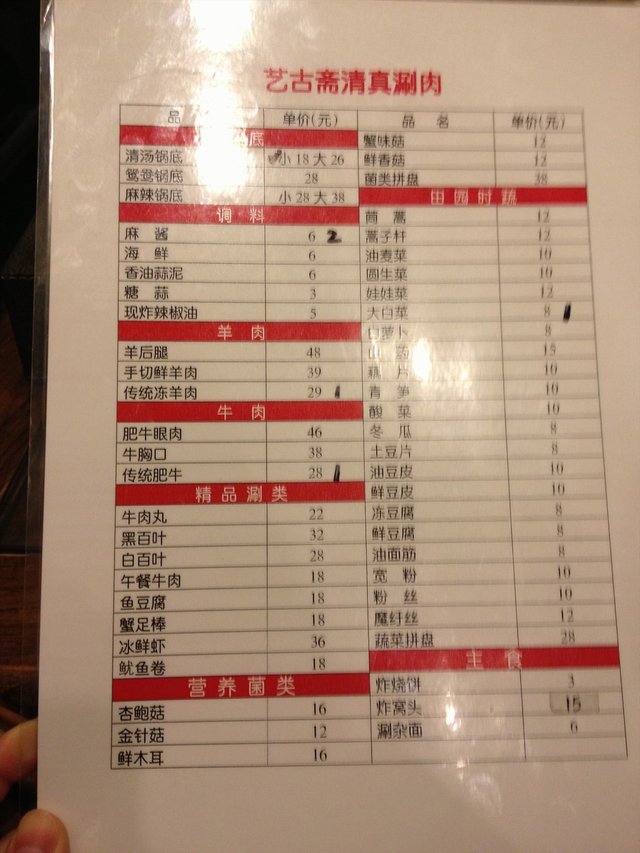 艺古斋清真涮肉
品 单价(元)
底
清汤锅底 小 18 大 26
鸳鸯锅底 28
麻辣锅底 小 28 大 38
调料
麻酱 6 2
海鲜 6
香油蒜泥 6
糖蒜 3
现炸辣椒油 5
羊肉
羊后腿 48
手切鲜羊肉 39
传统冻羊肉 29 1
牛肉
肥牛眼肉 46
牛胸口 38
传统肥牛 28 1
精品涮类
牛肉丸 22
黑百叶 32
白百叶 28
午餐牛肉 18
鱼豆腐 18
蟹足棒 18
冰鲜虾 36
鱿鱼卷 18
营养菌类
杏鲍菇 16
金针菇 12
鲜木耳 16
品名 单价(元)
蟹味菇 12
鲜香菇 12
菌类拼盘 38
田园时蔬
茼蒿 12
蒿子杆 12
油麦菜 10
圆生菜 10
娃娃菜 12
大白菜 8 1
白萝卜 8
山药 15
藕片 10
青笋 10
酸菜 10
冬瓜 8
土豆片 8
油豆皮 10
鲜豆皮 10
冻豆腐 8
鲜豆腐 8
油面筋 8
宽粉 10
粉丝 10
魔纤丝 12
蔬菜拼盘 28
主食
炸烧饼 3
炸窝头 15
涮杂面 6